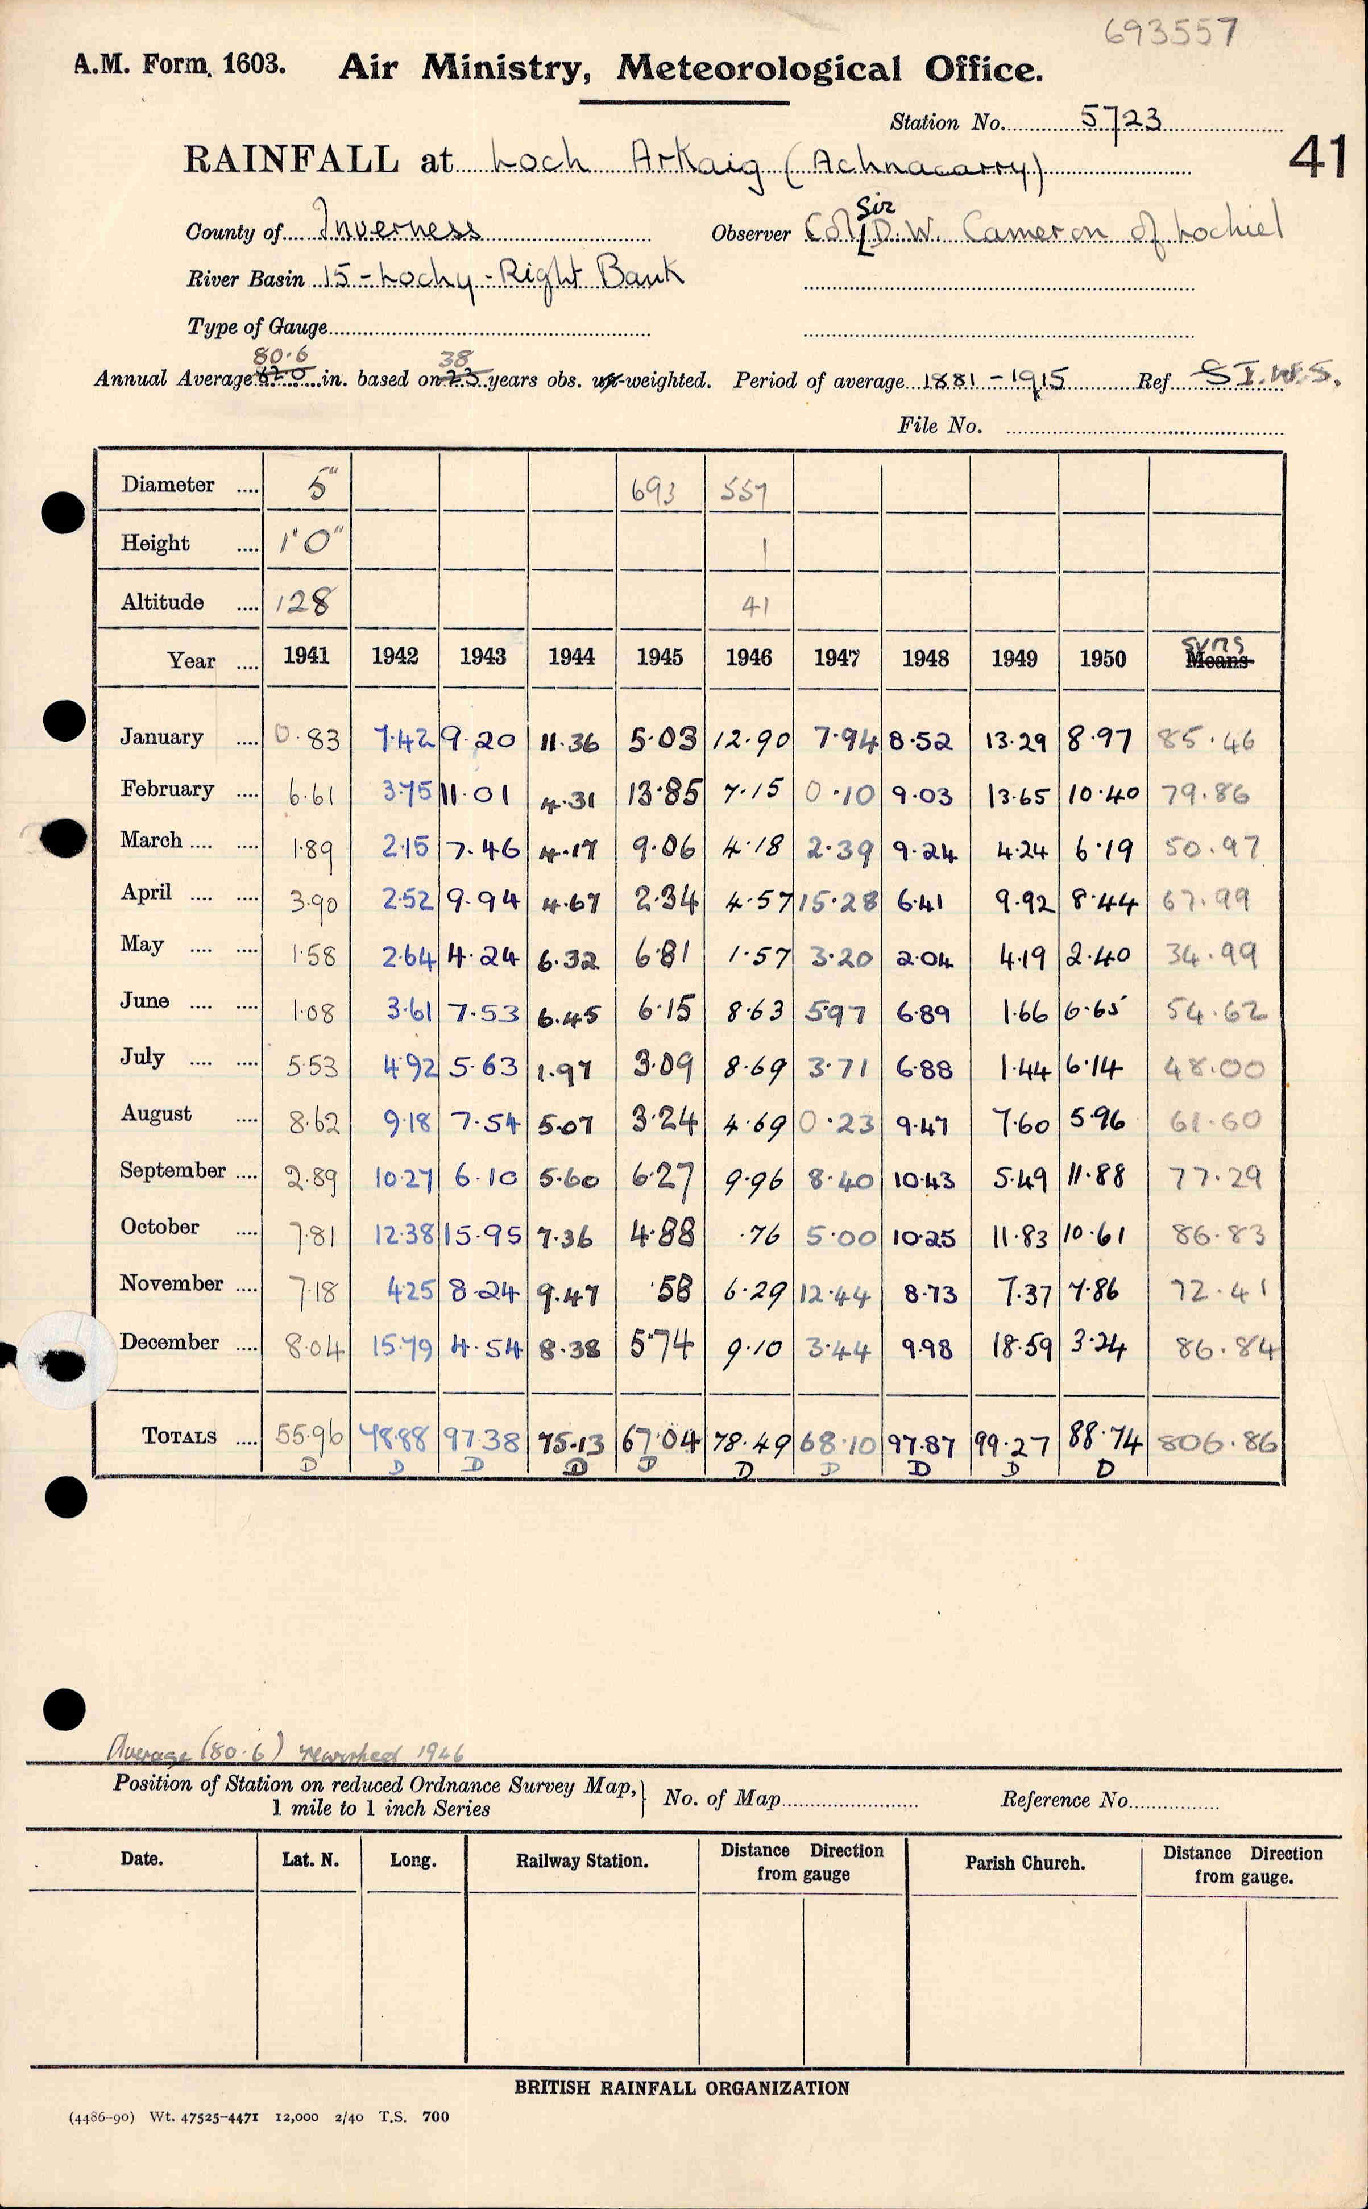 693557
A.M. Form 1603. Air Ministry, Meteorological Office.
Station No. 5723
41
RAINFALL at Loch Arkaig (Achnacarry)
Sir
County of Inverness Observer Col. D. W. Cameron of Lochiel
River Basin 15 - Lochy - Right Bank
Type of Gauge
80.6 38
Annual Average 82.0 in. based on 23 years obs. weighted. Period of average 1881 - 1915 Ref. S I.W.S.
File No.
Diameter .... 5" 693 557
Height .... 1'0" 1
Altitude .... 128 41
sums
Year .... 1941 1942 1943 1944 1945 1946 1947 1948 1949 1950 Means
January .... 0.83 7.42 9.20 11.36 5.03 12.90 7.94 8.52 13.29 8.97 85.46
February .... 6.61 3.75 11.01 4.31 13.85 7.15 0.10 9.03 13.65 10.40 79.86
March .... .... 1.89 2.15 7.46 4.17 9.06 4.18 2.39 9.24 4.24 6.19 50.97
April .... .... 3.90 2.52 9.94 4.67 2.34 4.57 15.28 6.41 9.92 8.44 67.99
May .... .... 1.58 2.64 4.24 6.32 6.81 1.57 3.20 2.04 4.19 2.40 34.99
June .... .... 1.08 3.61 7.53 6.45 6.15 8.63 5.97 6.89 1.66 6.65 54.62
July .... .... 5.53 4.92 5.63 1.97 3.09 8.69 3.71 6.88 1.44 6.14 48.00
August .... 8.62 9.18 7.54 5.07 3.24 4.69 0.23 9.47 7.60 5.96 61.60
September .... 2.89 10.27 6.10 5.60 6.27 9.96 8.40 10.43 5.49 11.88 77.29
October .... 7.81 12.38 15.95 7.36 4.88 .76 5.00 10.25 11.83 10.61 86.83
November .... 7.18 4.25 8.24 9.47 .58 6.29 12.44 8.73 7.37 7.86 72.41
December .... 8.04 15.79 4.54 8.38 5.74 9.10 3.44 9.98 18.59 3.24 86.84
TOTALS .... 55.96 78.88 97.38 75.13 67.04 78.49 68.10 97.87 99.27 88.74 806.86
D D D D D D D D D D
Average (80.6) reworked 1946
Position of Station on reduced Ordnance Survey Map, No. of Map Reference No.
1 mile to 1 inch Series
Date. Lat. N. Long. Railway Station. Distance Direction from gauge Parish Church. Distance Direction from gauge.
BRITISH RAINFALL ORGANIZATION
(4486-90) Wt. 47525-4471 12,000 2/40 T.S. 700